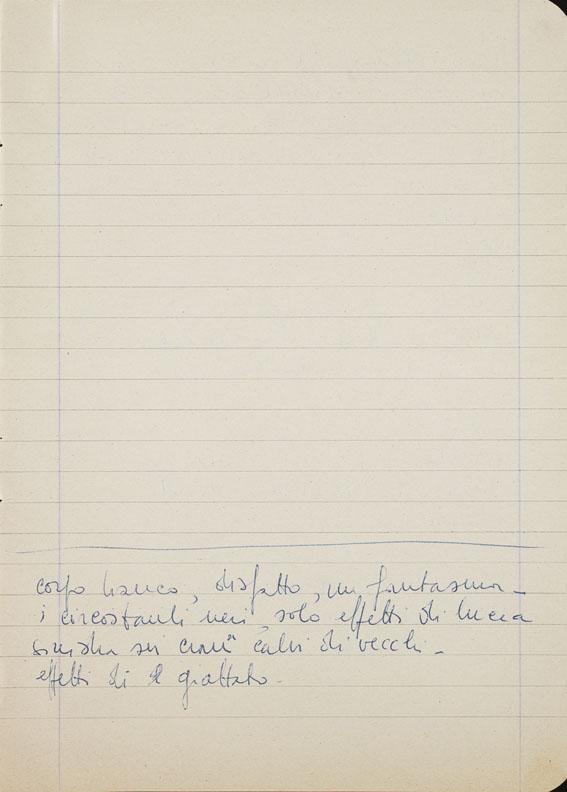 corpo bianco, disfatto, un fantasma -
i circostanti neri, solo effetti di lucea
sinistra sui crani calvi di vecchi -
effetti di grattato.